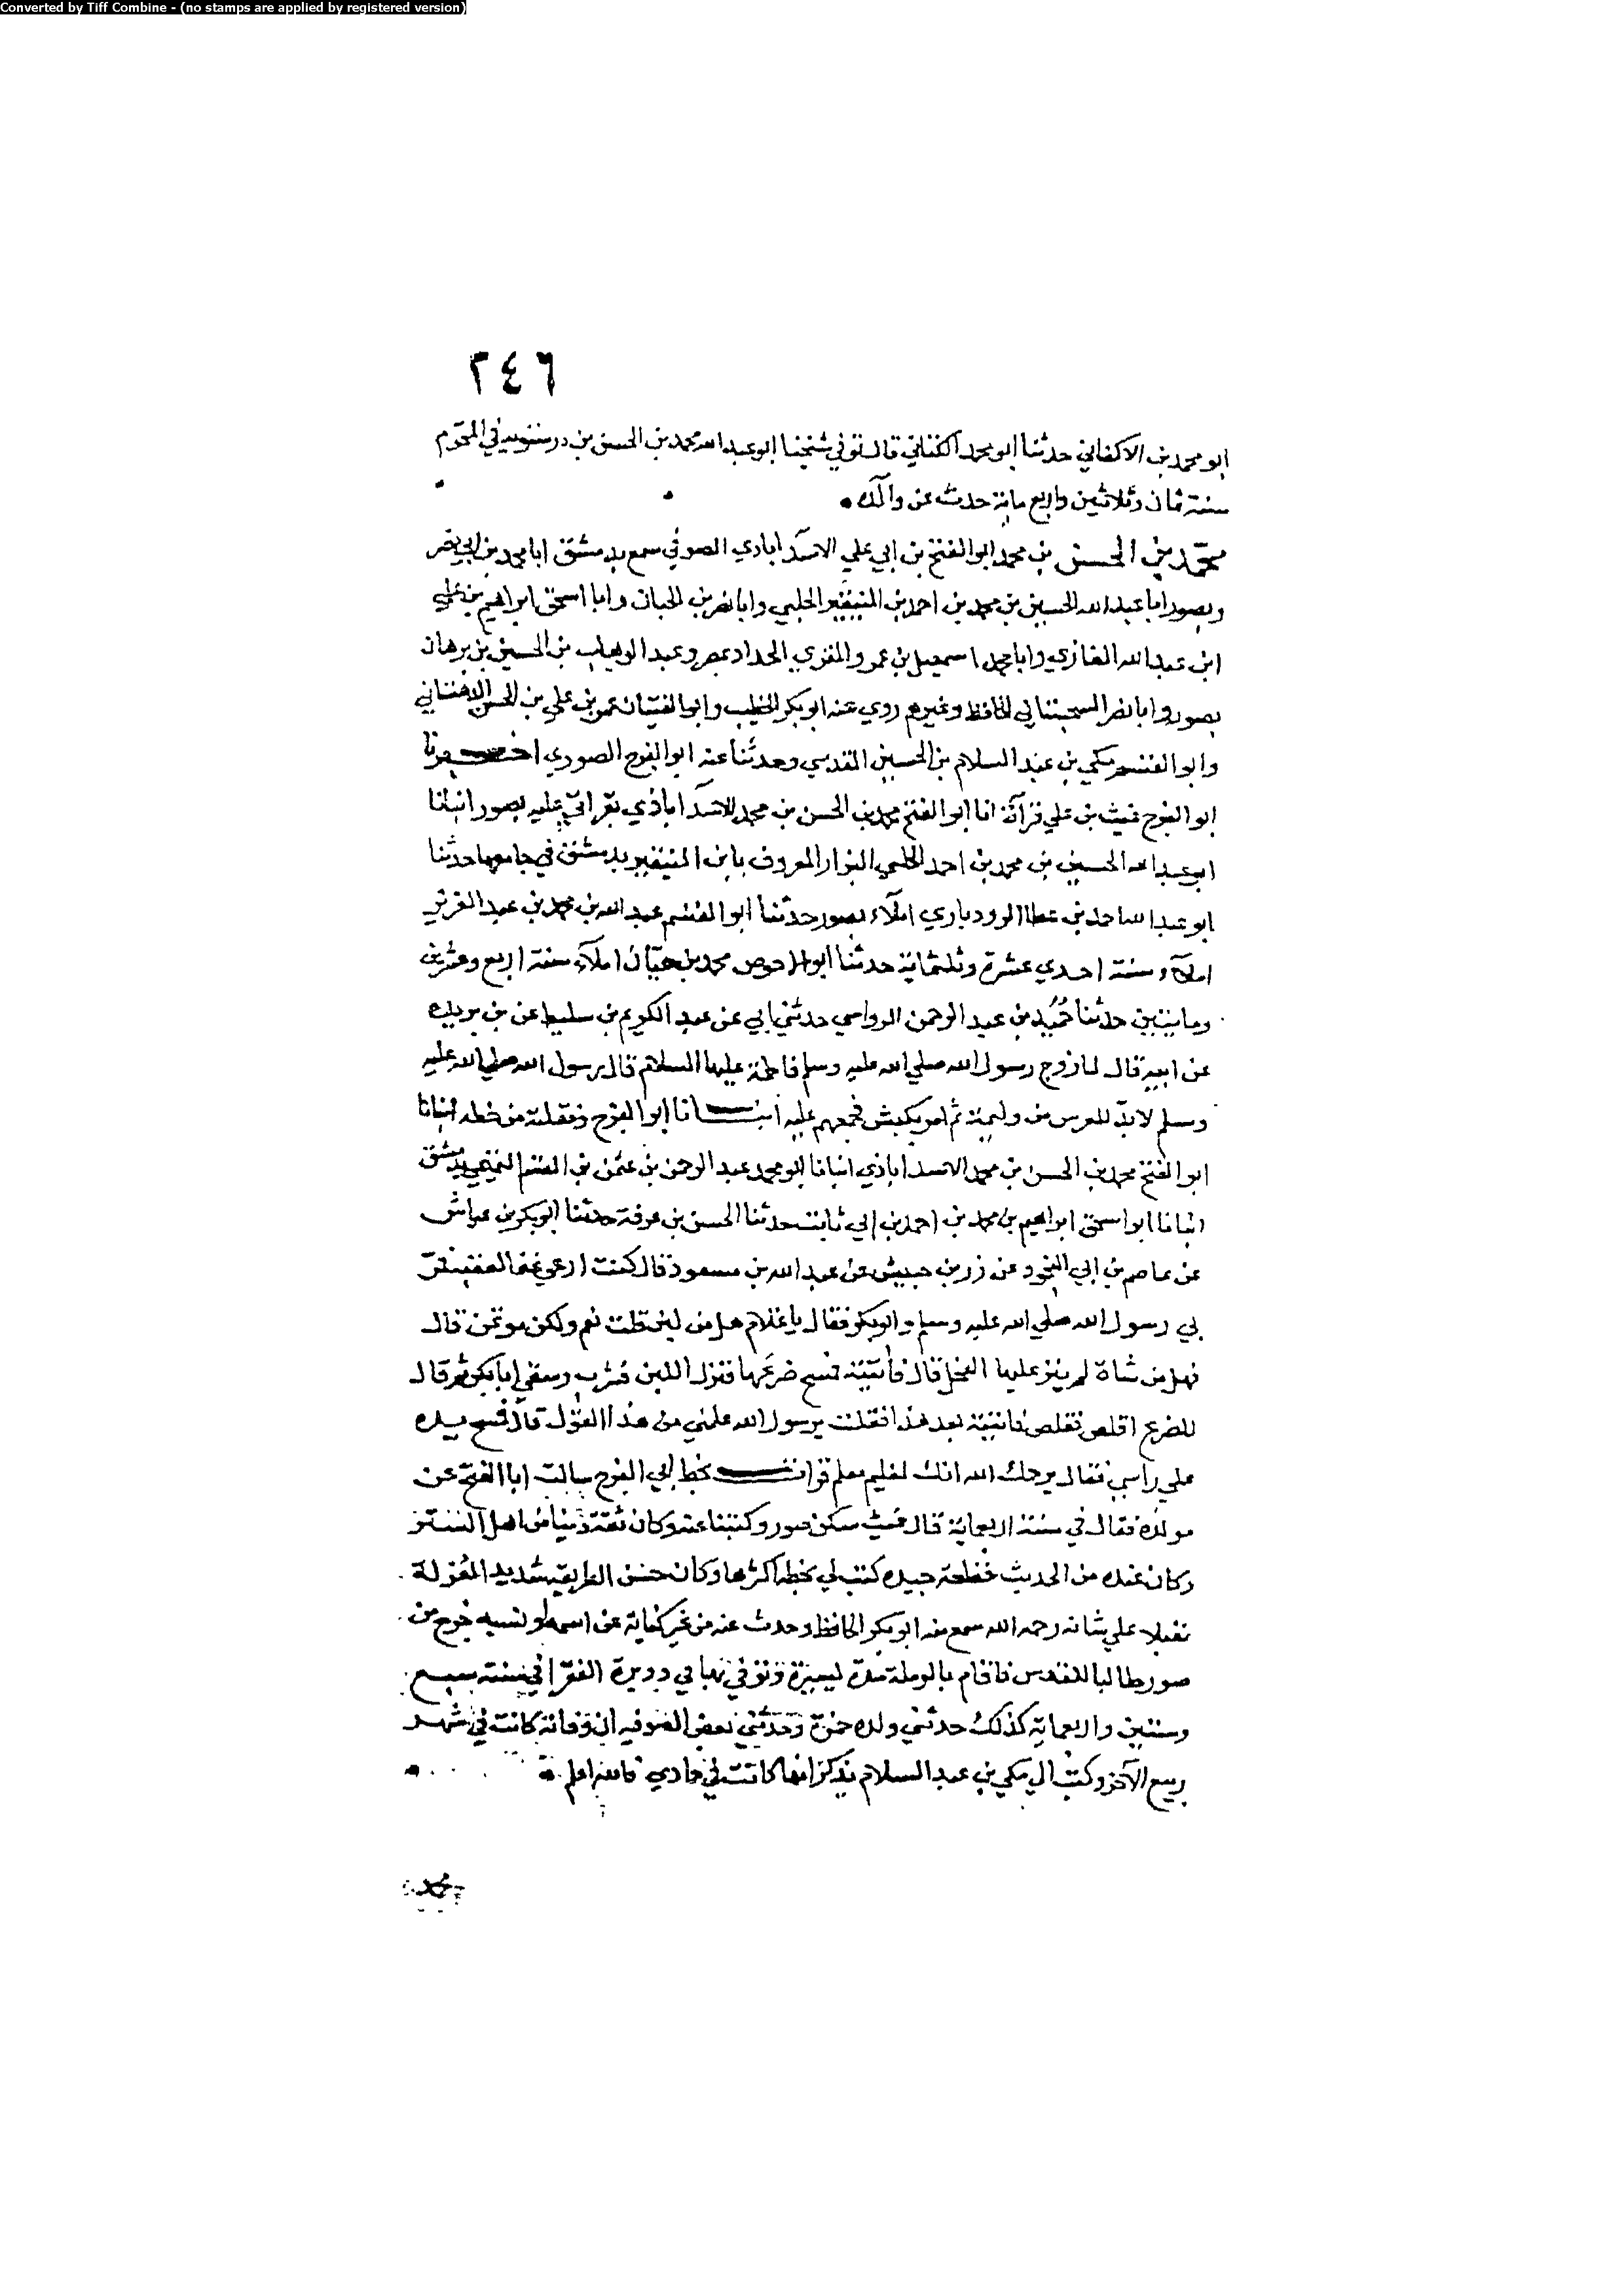 Converted by Tiff Combine - (no stamps are applied by registered version)
٢٤٦
ابو محمد بن الاكفاني حدثنا ابو محمد الكتاني قال توفي شيخنا ابو عبد الله محمد بن الحسن بن درستويه في المحرم
سنة ثمان وثلاثين واربع ماية حدث عن والده
محمد بن الحسن بن محمد ابو الفتح بن ابي علي الاسد ابادي الصوفي سمع بدمشق ابا محمد بن ابي نصر
وبصور ابا عبد الله الحسين بن محمد بن احمد بن المنيقير الحلبي وابا نصر بن الجبان وابا اسحق ابراهيم بن علي
ابن عبد الله الغازي وابا محمد اسمعيل بن عمرو المقري الحداد بمصر وعبد الوهاب بن الحسين بن برهان
بصور وابا نصر السجستاني الحافظ وغيرهم روي عنه ابو بكر الخطيب وابو الفتيان عمر بن علي بن الحسن
وابو القسم مكي بن عبد السلام بن الحسين المقدسي وحدثنا عنه ابو الفرج الصوري اخبرنا
ابو الفرج غيث بن علي قراة انا ابو الفتح محمد بن الحسن بن محمد الاسد اباذي بقراتي عليه بصور انبانا
ابو عبد الله الحسين بن محمد بن احمد الحلبي البزار المعروف بابن المنيقير بدمشق في جامعها حدثنا
ابو عبد الله احمد بن عطا الرودباري املآء بصور حدثنا ابو القسم عبد الله بن محمد بن عبد العزيز
املآء سنة احدي عشرة وثلثماية حدثنا ابو الاحوص محمد بن حيان املآء سنة اربع وعشرين
ومايتين حدثنا حُمَيد بن عبد الرحمن الرواسي حدثني ابي عن عبد الكريم بن سليط عن بن بريده
عن ابيه قال لما زوج رسول الله صلي الله عليه وسلم فاطمة عليها السلام قال رسول الله صلي الله عليه
وسلم لابدّ للعرس من وليمة ثم امر بكبش فجمعهم عليه انبانا ابو الفرج ونقلته من خطه انبانا
ابو الفتح محمد بن الحسن بن محمد الاسد اباذي انبانا ابو محمد عبد الرحمن بن عثمن بن القسم التميمي بدمشق
انبانا ابو اسحق ابراهيم بن محمد بن احمد بن ابي ثابت حدثنا الحسن بن عرفة حدثنا ابو بكر بن عياش
عن عاصم بن ابي النجود عن زر بن حبيش عن عبد الله بن مسعود قال كنت ارعي غنما لعقبة فمرّ
بي رسول الله صلي الله عليه وسلم وابو بكر فقال يا غلام هل من لبن قلت نعم ولكن موتمن قال
فهل من شاة لم ينز عليها الفحل قال فاتيته فمسح ضرعها فنزل اللبن فشرب وسقي ابا بكر ثم قال
للضرع اقلص فقلص فاتيته بعد هذا فقلت يرسول الله علمني من هذا القول قال فمسح بيده
علي راسي فقال يرحمك الله انك لغليم معلم قرات بخط ابي الفرج سالت ابا الفتح عن
مولده فقال في سنة اربعماية قال غيث سكن صور وكتبنا عنه وكان ثقة دينا من اهل الستر
وكان عنده من الحديث قطعة جيده كتب لي بخطه اكثرها وكان حسن الطريقة شديد العزلة
مقبلا علي شانه رحمه الله سمع منه ابو بكر الحافظ وحدث عنه من غير كناية عن اسمه او نسبه خرج من
صور طالبا للقدس فاقام بالرملة مدة يسيرة وتوفي بها في دويرة الفقرا في سنة سبع
وستين واربعماية كذلك حدثني ولده حمزة وحدثني بعض الصوفيه ان وفاته كانت في شهر
ربيع الآخر وكتب الي مكي بن عبد السلام يذكر انها كانت في جمادي فالله اعلم
محمد